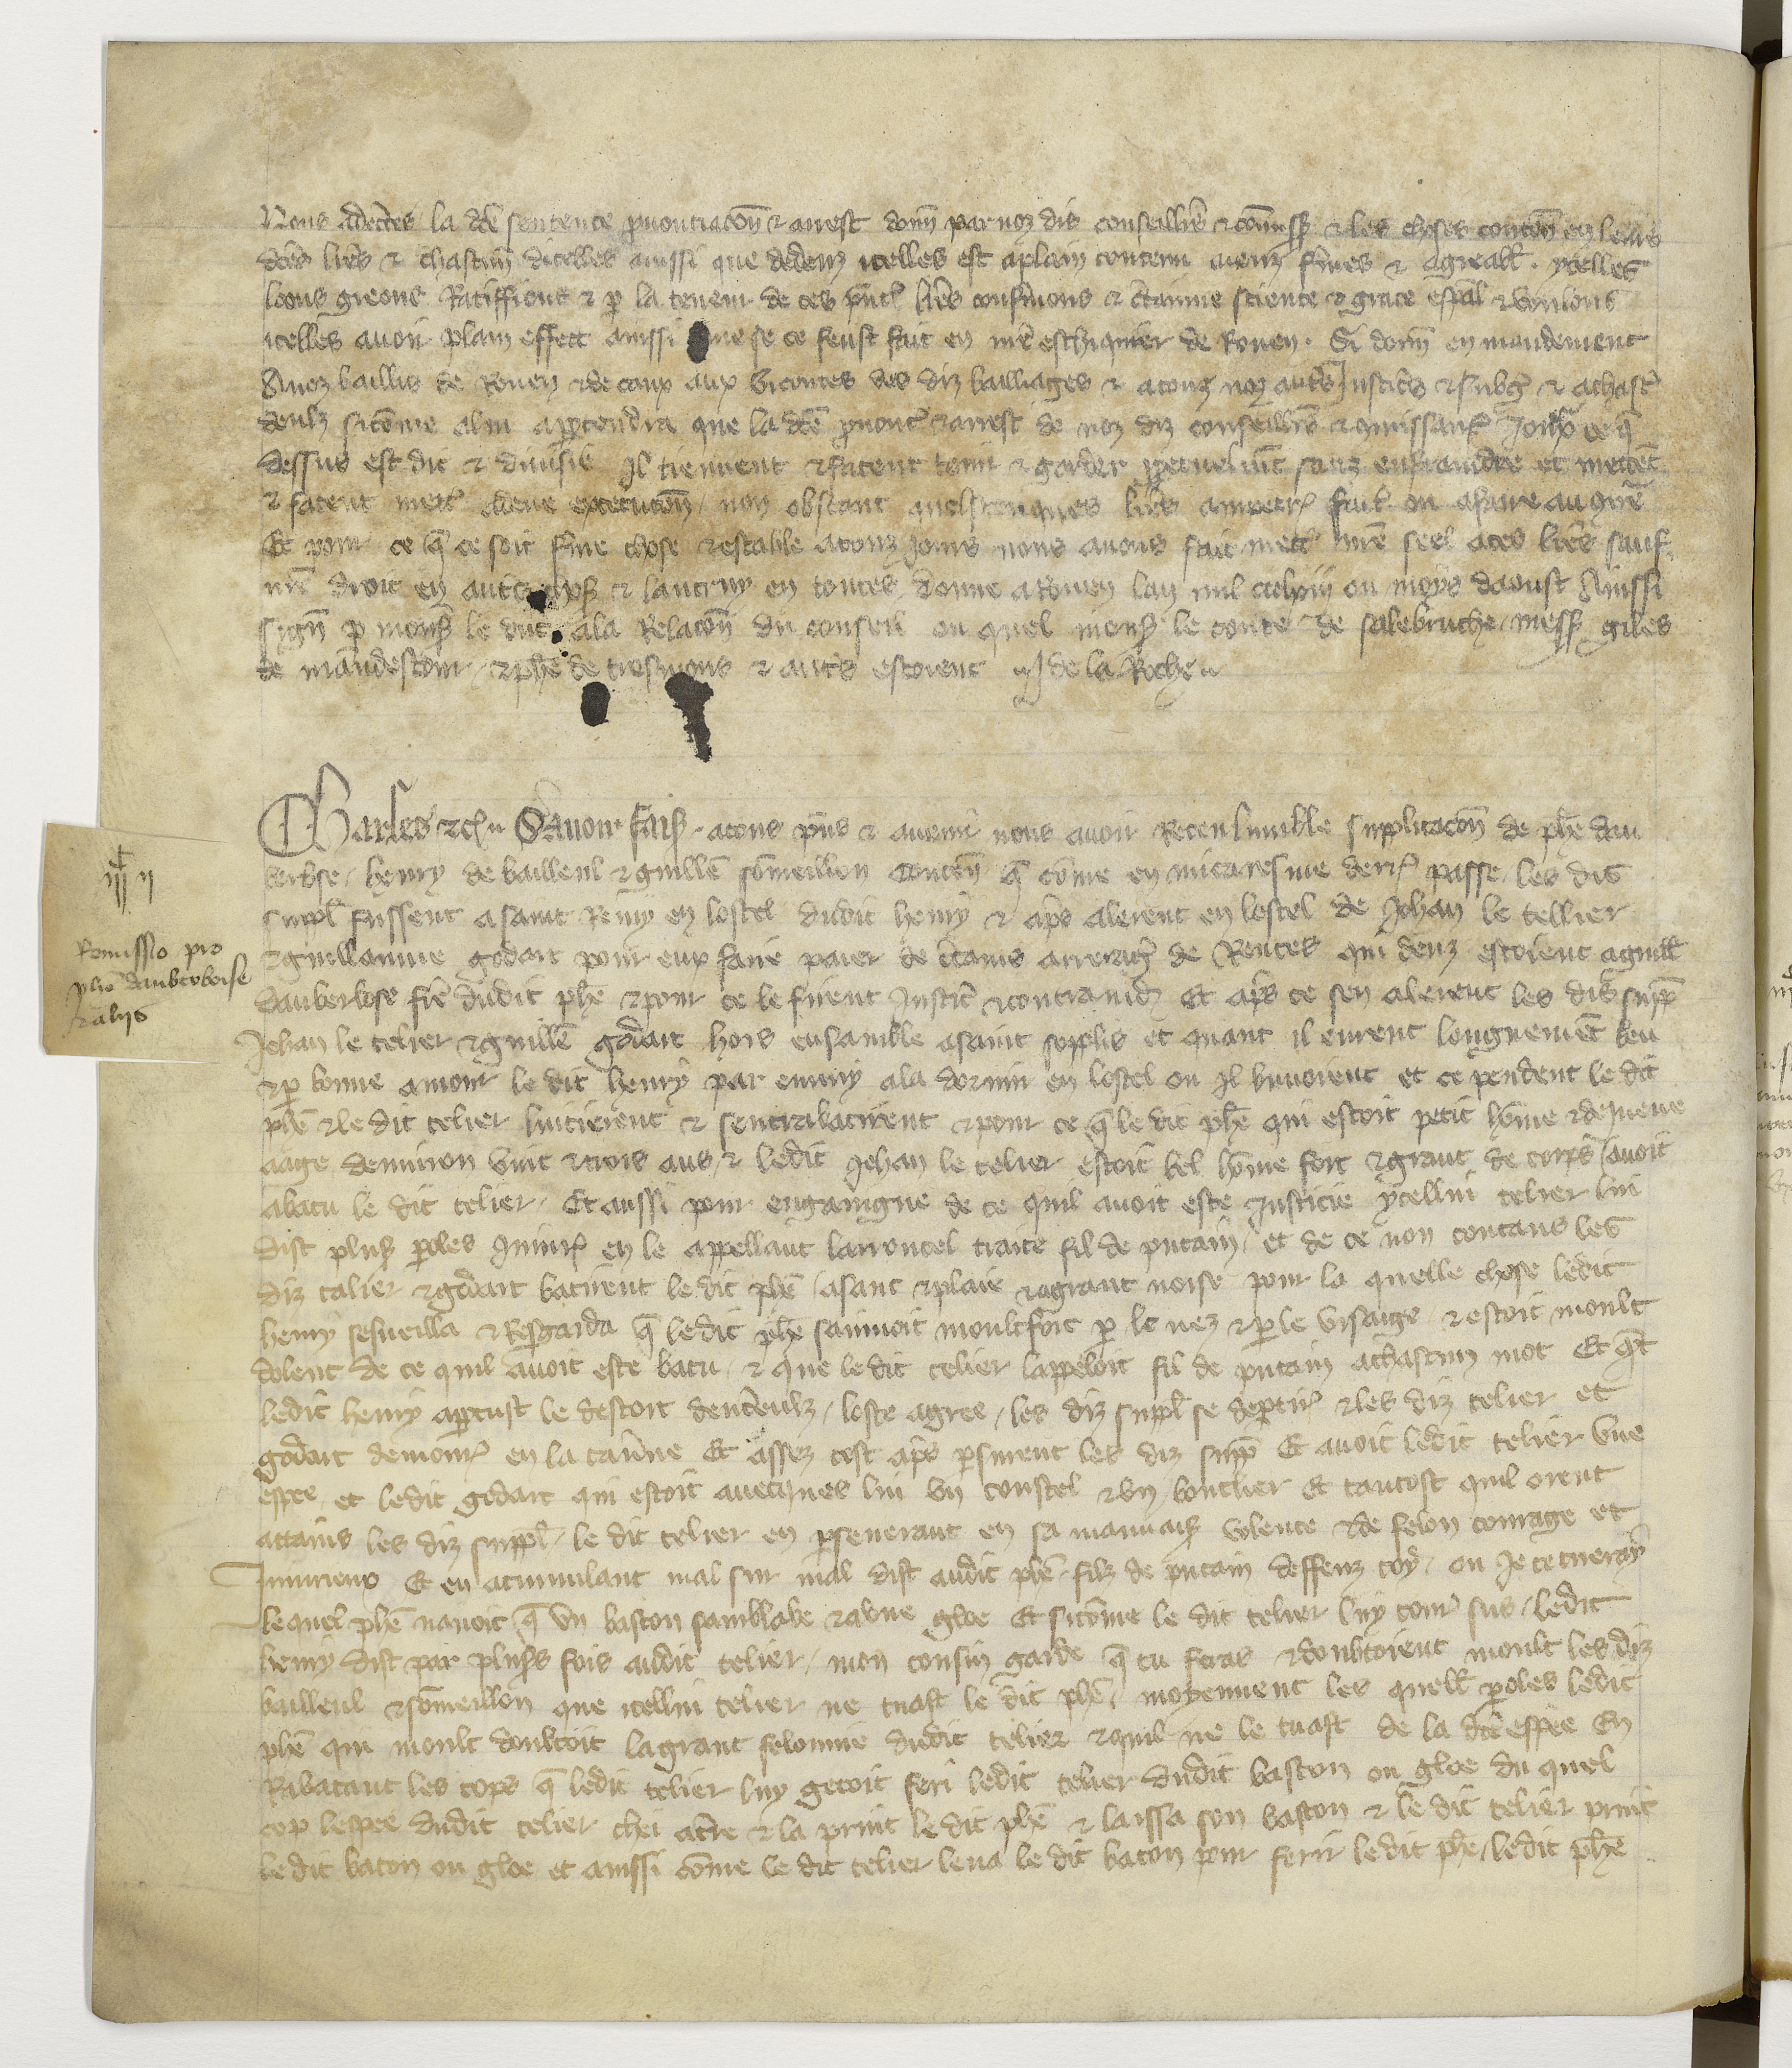 Nous adecertes la dce sentence pronontiacon & arrest donn par noz dis conseilliers & commiss & les choses conten en leurs
dces lres & chascun dicelles aussi que dedenz icelles est aplain contenu avens fermes & agreabl . ycelles
loons greons Ratiffions & p la teneur de ces pnt lres confermons & certainne science & grace espal & voulons
icelles avoir plain effect aussi que se ce feust fait en nre eschiquier de Rouen . Si donn en mandement
Anoz baillis de Rouen & de caux aux vicontes des diz bailliages & a touz noz autres Justic & subg & a chast
deulz sicome alui appartendra que la dce pronont & arrest de noz diz conseilliers & ce q
dessus est dit & divise Il tiennent & facent tenir & garder ppetuelmt sanz enfraindre et mettet
& facent mett a deue execucon / non obstant quelsconques lres empetr fait ou afaire au gre
Et pour ce q ce soit ferme chose & estable a touz jours nous avons fait mett nre seel a ces lres sauf
nre droit en autres choses & lautruy en toutes . donne a Rouen lan mil ccclxiiii ou moys daoust Ainssi
sign p mons le duc . ala Relacon du conseil ou quel mons le conte de salebruche / mess giles
de / & phe de troismons & autres estoient J de la Roche
Charles & c Savoir fais . a tous pns & avenir nous avoir Receu lumble supplicacon de phe dau
berbose . henry de bailleul & guille someillon conten q come en micaresme derr passe les dis
suppl fussent a saint Remy en lostel dudit henry & aps alerent en lostel de Jehan le tellier
& guillaume godart pour eux faire paier de ctains arrerag de Rentes qui deuz estoient a guill
dauberbose fre dudit phe & pour ce le firent Justic & contraindr Et aps ce sen alerent les dis supp
Jehan le telier & guille godart hors ensamble a saint sopplis et quant il eurent longuement beu
& p bonne amour le dit henry par ennuy ala dormir en lostel ou Il buvoient et ce pendent le dit
phe & le dit telier luitierent & sentrabatirent & pour ce q le dit phe qui estoit petit home & de juene
aage denviron vint & trois ans / & ledit Jehan le telier estoit bel home fort & grant de corps / avoit
abatu le dit telier / Et aussi pour engaingne de ce quil avoit este Justicie ycellui telier lui
dist plus poles Injur en le appellant larroncel traite fil de putain / et de ce non contans les
diz talier & godart batirent le dit phe / a sanc & plaie & a grant noise pour la quelle chose ledit
henry sesveilla & Resgarda q ledit phe sainnoit moult fort p le nez & p le visaige / & estoit moult
dolent de ce quil avoit este batu / & que ledit telier lappeloit fil de putain a chascun mot Et qt
ledit henry apceust le descort dentreulz / loste agree / les diz suppl se deptir & les diz telier et
godart demour en la taverne Et assez tost aps psuirent les diz supp Et avoit ledit telier une
espee et ledit godart qui estoit avecques lui un coustel & un bouclier Et tantost quil orent
attains les diz suppl / le dit telier en psenerant en sa mauvaise volente & de felon courage et
Injurieux Et en acumulant mal sur mal dist audit phe filz de putain deffenz toy / ou Je te tueray
lequel phe navoit q un baston samblable a une gloe Et sicome le dit telier luy couroit sus / ledit
henry dist par pluss fois audit telier / mon cousin garde q tu feras & doubtoient moult les diz
bailleul & someillon que icellui telier ne tuast le dit phe / moyennent les quell poles ledit
phe qui moult doubtoit la grant felonnie dudit telier & quil ne le tuast de la dce espee En
Rabatant les cops q ledit telier luy getoit feri ledit telier dudit baston ou gloe du quel
cop lespee dudit telier chei a tre & la print le dit phe & laissa son baston & le dit telier print
le dit baton ou gloe et aussi come le dit telier leva le dit baton pour ferir ledit phe / ledit phe
Remissio pro
pho daubtoboise
& aliis